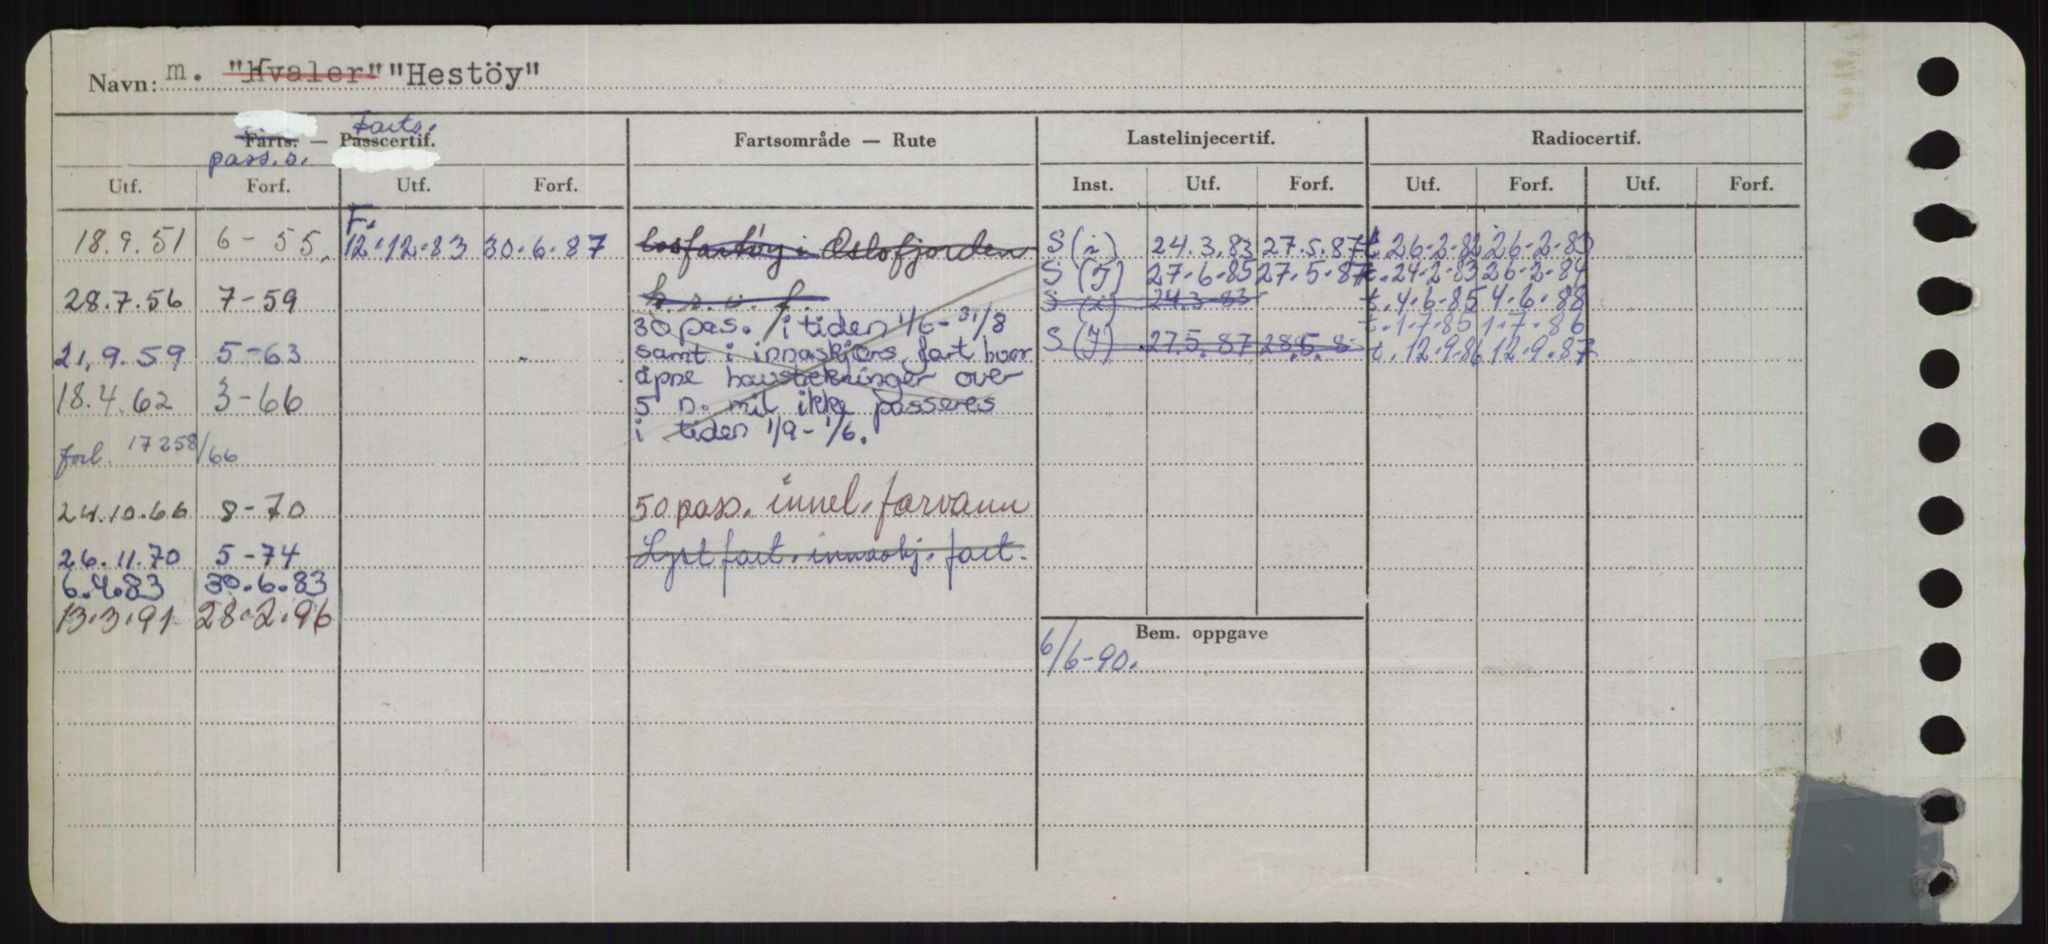 Navn: m. "Hvaler" "Hestöy"
Farts. — Passcertif. Farts.
pass.s.
Fartsområde — Rute
Lastelinjecertif.
Radiocertif.
Utf. Forf. Utf. Forf. Inst. Utf. Forf. Utf. Forf. Utf. Forf.
F.
18.9.51 6-55. 12.12.83 30.6.87 losfartöy i Oslofjorden S(i) 24.3.83 27.5.87 t. 26.2.82 26.2.83
S(J) 27.6.85 27.5.87 t. 24.2.83 26.2.84
28.7.56 7-59 k.s.v.f. S(i) 24.3.83 t. 4.6.85 4.6.88
30 pas. i tiden 1/6-31/8 t. 1.7.85 1.7.86
21.9.59 5-63 samt i innaskjørs fart hvor S(J) 27.5.87 28.5.8 t. 12.9.86 12.9.87
åpne havstrekninger over
18.4.62 3-66 5 n. mil ikke passeres
i tiden 1/9-1/6.
forl. 17258/66
24.10.66 8-70 50 pass. innel. farvann
26.11.70 5-74 Lyst fart. innaskj. fart.
6.4.83 30.6.83
13.3.91 28.2.96
Bem. oppgave
6/6-90.